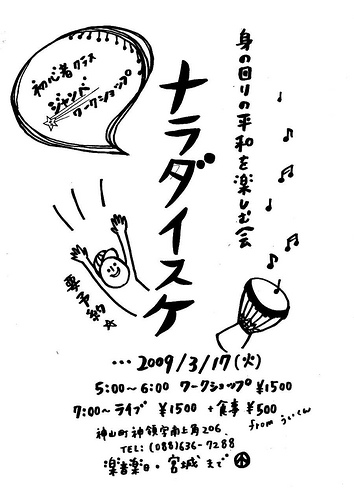 身の回りの平和を楽しむ会
初心者クラス
ジャンベ
ワークショップ
ナラダイスケ
要予約
... 2009/3/17(火)
5:00~6:00 ワークショップ ¥1500
7:00~ライブ ¥1500 +食事 ¥500
from ういくん
神山町神領字南上角206
TEL: (088)636-7288
楽音楽日・宮城まで